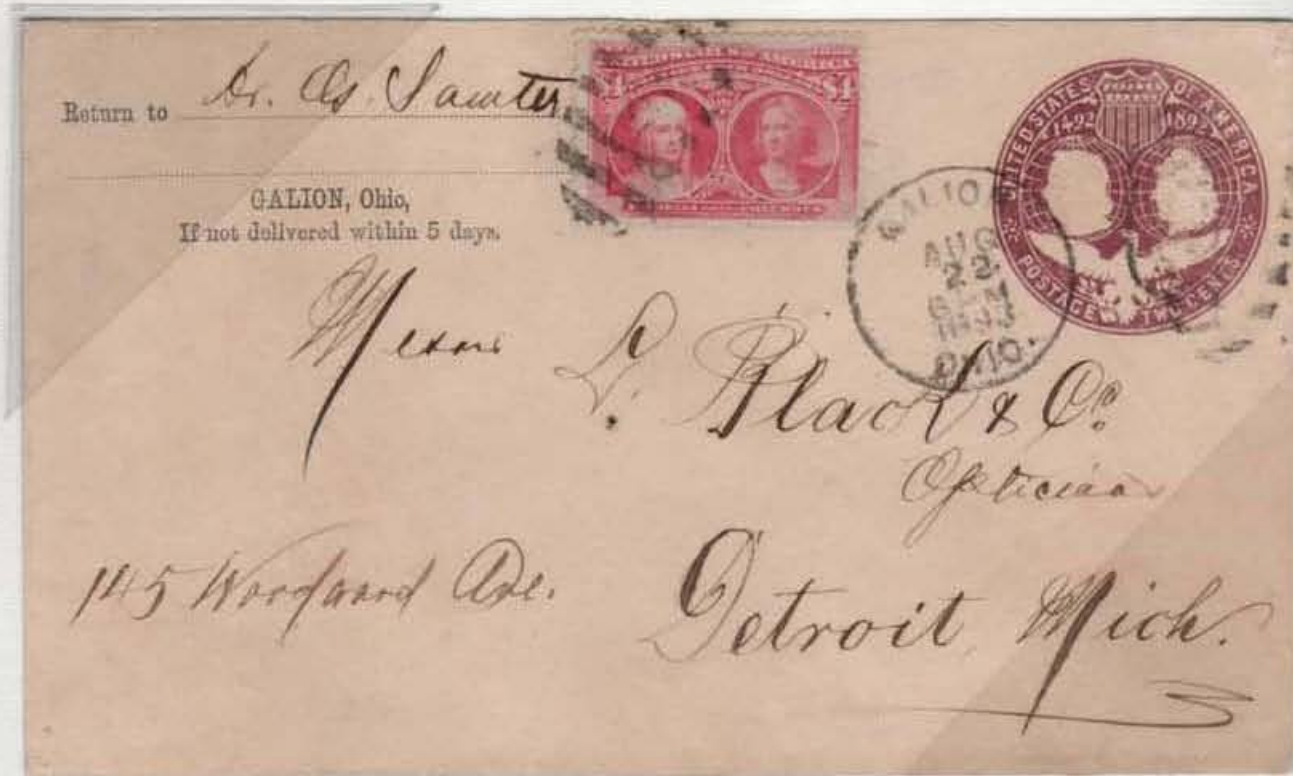 Return to Dr. Os. Samter
GALION, Ohio,
If not delivered within 5 days.
UNITED STATES OF AMERICA
1492 1892
POSTAGE TWO CENTS
OF AMERICA
$4 $4
GALION
AUG
22
6 PM
1893
OHIO.
Messrs
L. Black & Co.
Optician
145 Woodward Ave.
Detroit, Mich.